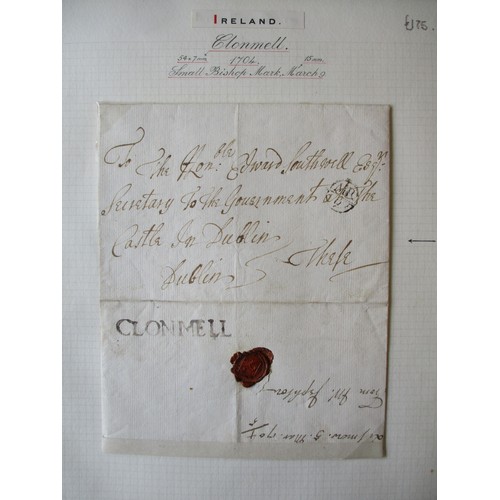 IRELAND.
£125.
Clonmell.
54 x 7mm 1704. 15mm
Small Bishop Mark, March 9
To The Honble Edward Southwell Esqr.
Secretary To the Government at The
Castle In Dublin
Dublin These
CLONMELL
from Mr.
Lismore. 5. Mar. 170